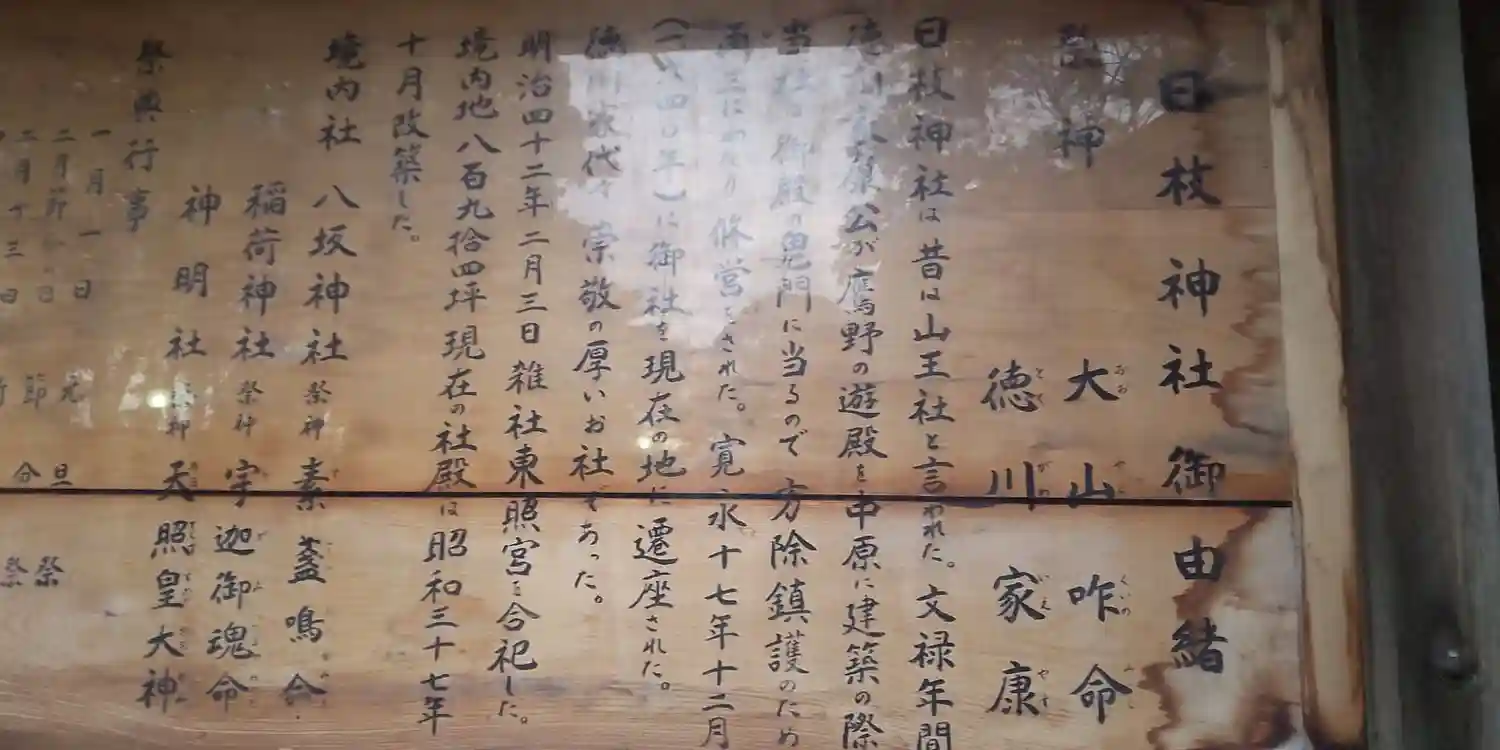 日枝神社御由緒
祭神 大山咋命
徳川家康
日枝神社は昔は山王社と言われた。文禄年間
徳川家康公が鷹野の遊殿を中原に建築の際
当社は御殿の鬼門に当るので方除鎮護のため
再三にわたり修営をされた。寛永十七年十二月
(一六四〇年)に御社を現在の地に遷座された。
徳川家代々崇敬の厚いお社であった。
明治四十二年二月三日雑社東照宮を合祀した。
境内地八百九拾四坪現在の社殿は昭和三十七年
十月改築した。
境内社 八坂神社 祭神 素盞鳴命
稲荷神社 祭神 宇迦御魂命
神明社 祭神 天照皇大神
祭典行事
一月一日 元旦祭
二月節分の日 節分祭
二月十三日